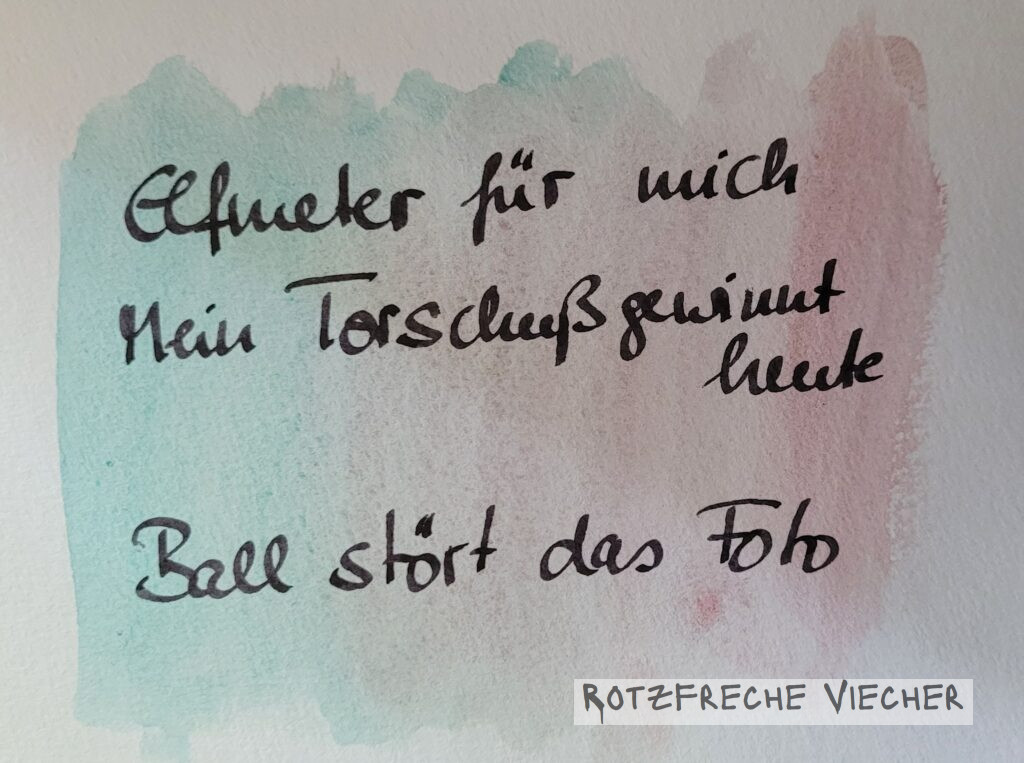 Elfmeter für mich
Mein Torschuß gewinnt
heute
Ball stört das Foto
ROTZFRECHE VIECHER